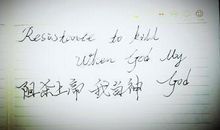 Resistance to kill
When God My
阻杀上帝 我当神 God